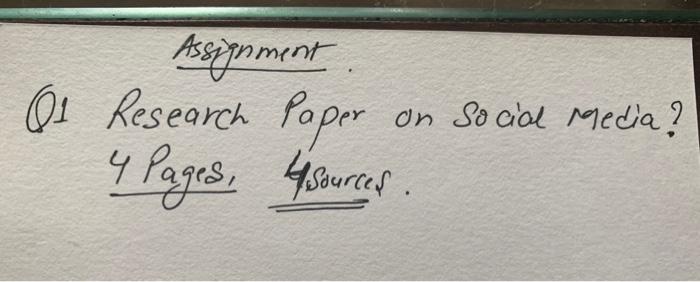 Assignment.
Q1 Research Paper on Social Media?
4 Pages, 4 Sources.